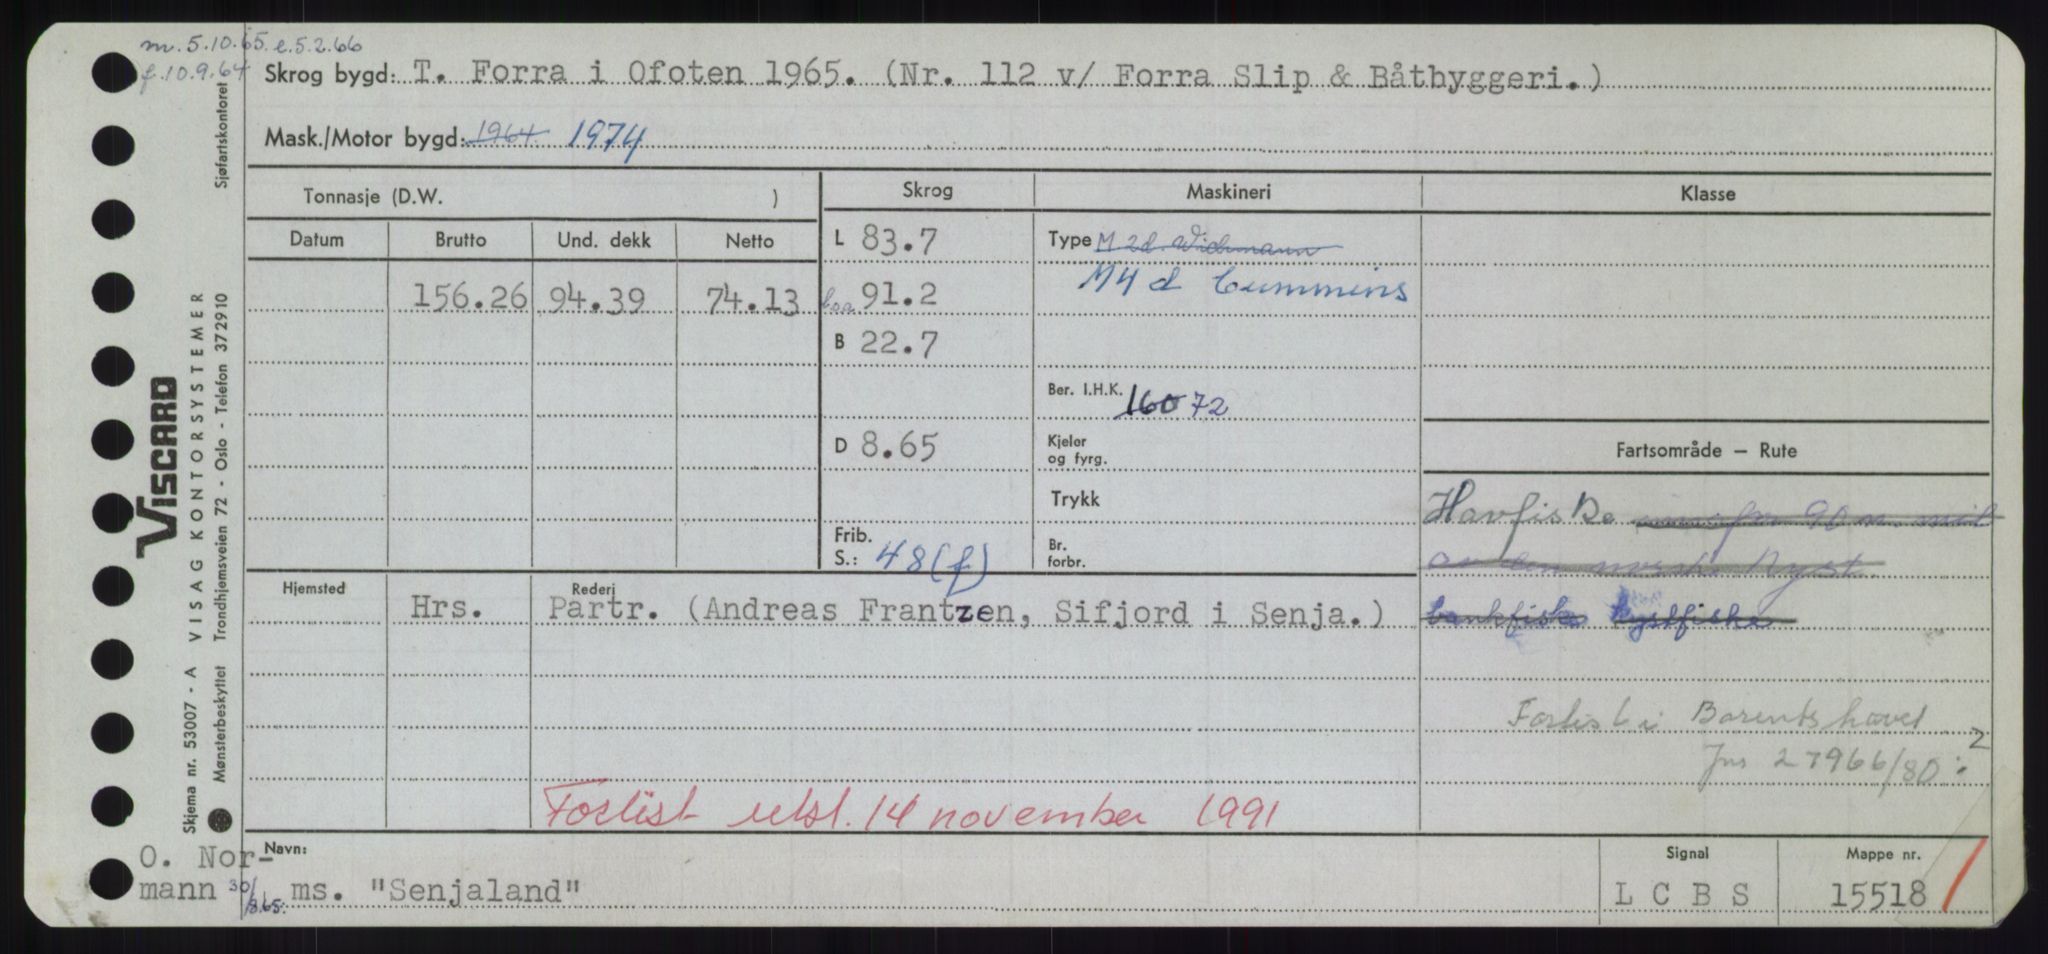 m. 5.10.65. e.5.2.66
f.10.9.64
Skrog bygd: T. Forra i Ofoten 1965. (Nr. 112 v/ Forra Slip & Båtbyggeri.)
Mask./Motor bygd: 1964. 1974
Sjøfartskontoret
Tonnasje (D.W. )
Skrog
Maskineri
Klasse
Datum Brutto Und. dekk Netto
L 83.7
Type M 2d. Wichmann
M4 d Cummins
156.26 94.39 74.13
loa 91.2
B 22.7
Ber. I.H.K. 160 72
D 8.65
Kjeler
og fyrg.
Fartsområde – Rute
Trykk
Havfiske 90 n. mil
av den norske kyst.
bankfiske kystfiske
Frib.
S.: 48(f)
Br.
forbr.
Hjemsted
Rederi
Hrs. Partr. (Andreas Frantzen, Sifjord i Senja.)
Forlist i Barentshavet
Jnr 27966/80 2
Forlist utsl. 14 november 1991
O. Nor-
mann 30/8.65.
Navn:
ms. "Senjaland"
Signal
L C B S
Mappe nr.
15518
VISCARD
Skjema nr. 53007 - A VISAG KONTORSYSTEMER
Mønsterbeskyttet Trondhjemsveien 72 - Oslo - Telefon 372910